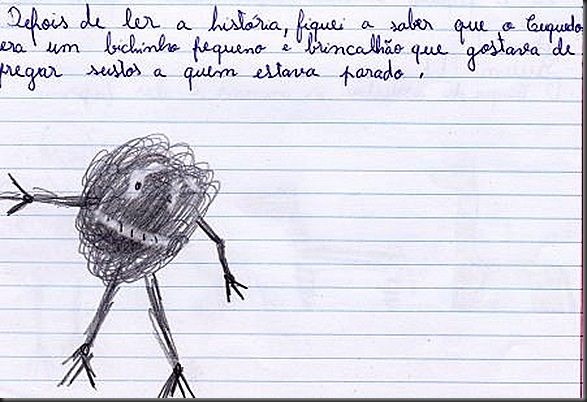 Depois de ler a história, fiquei a saber que o Cuquedo
era um bichinho pequeno e brincalhão que gostava de
pregar sustos a quem estava parado.